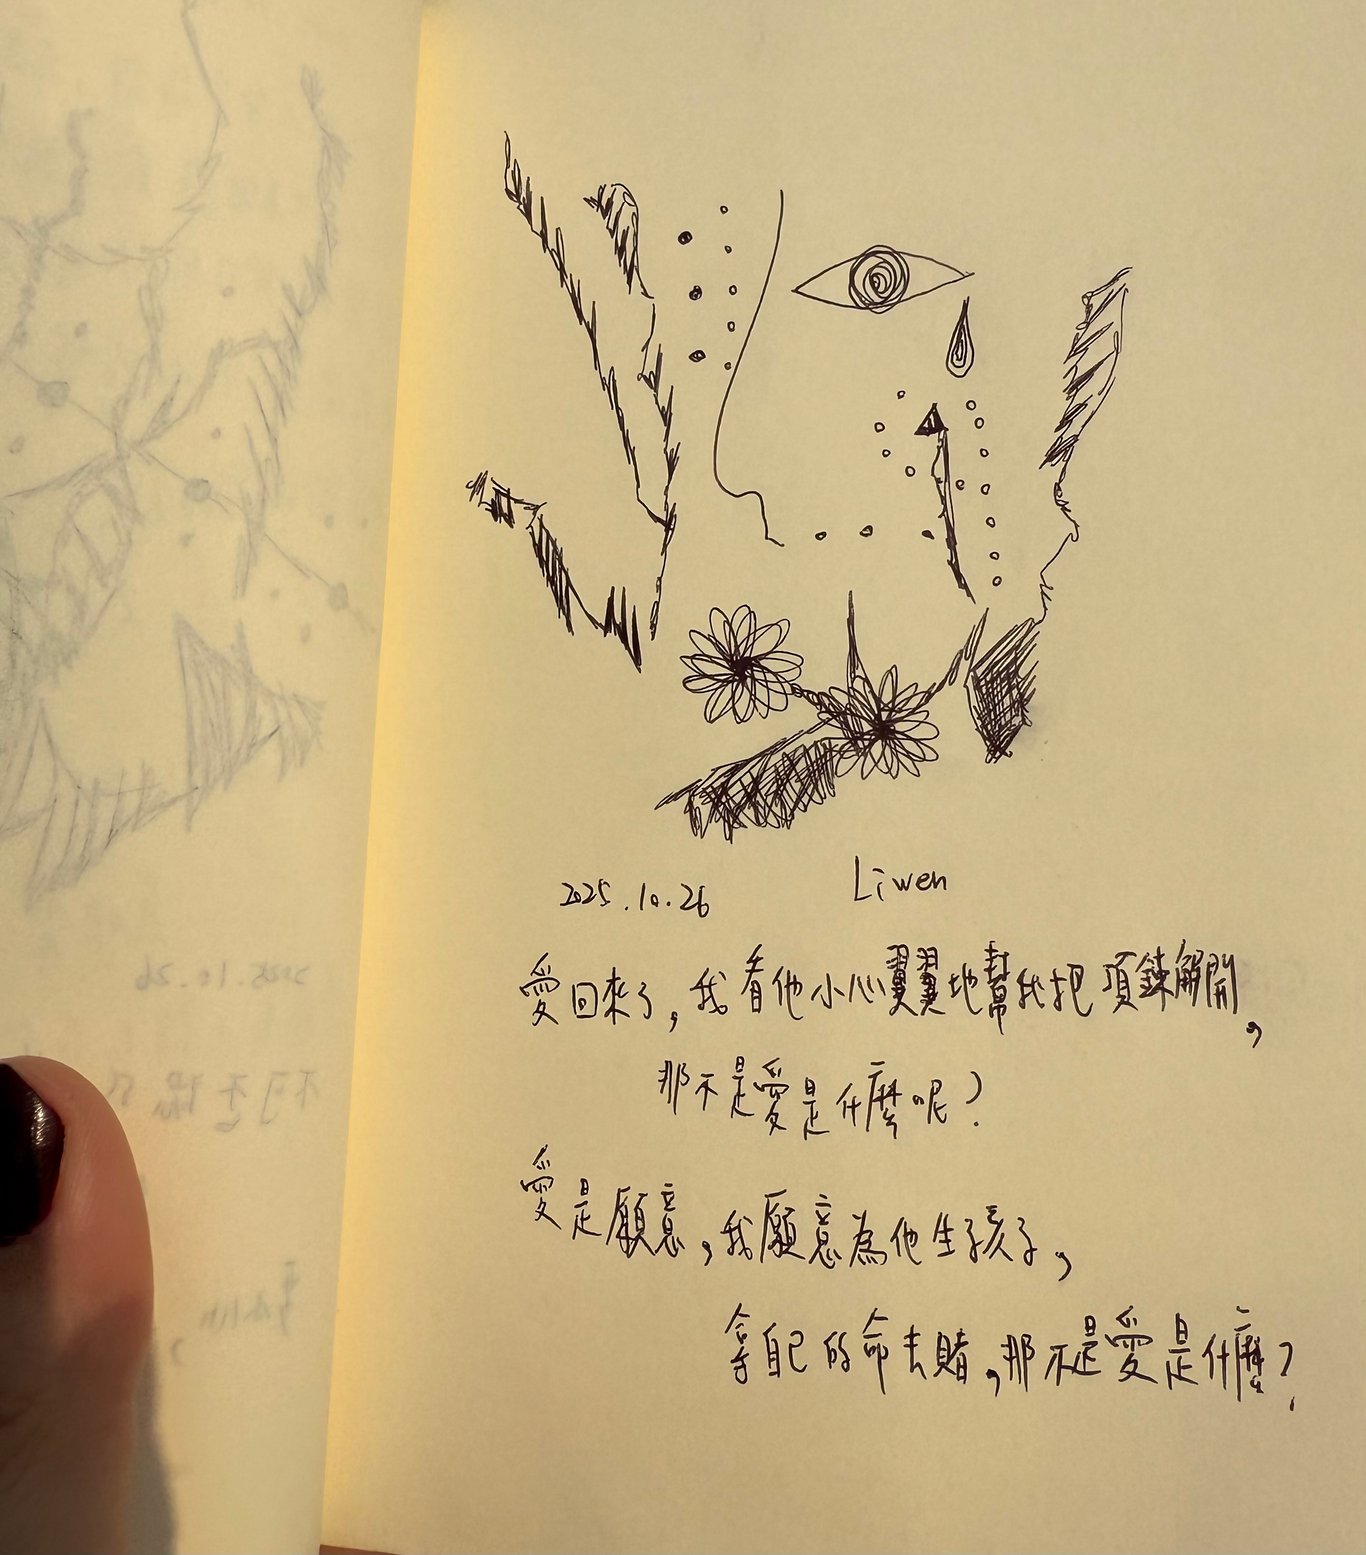 2025.10.26 Liwen
愛回來了，我看他小心翼翼地幫我把項鍊解開，
那不是愛是什麼呢？
愛是願意，我願意為他生孩子，
拿自己的命去賭，那不是愛是什麼？
2025.10.26